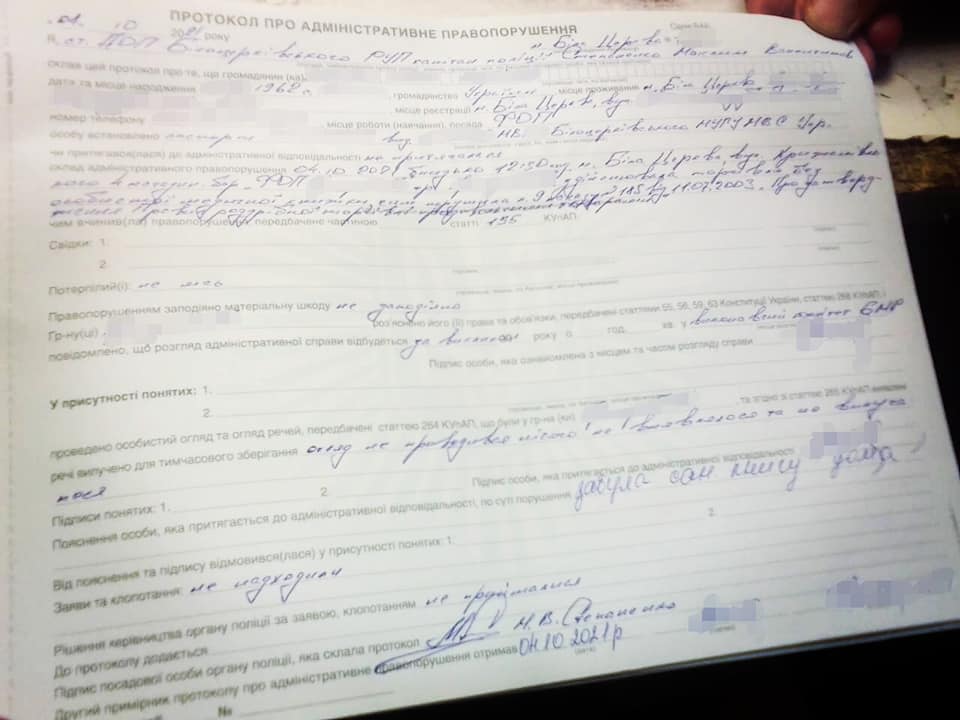 ПРОТОКОЛ ПРО АДМІНІСТРАТИВНЕ ПРАВОПОРУШЕННЯ
04. 10 2021 року м. Біла Церква
Я, ст. ДОП Білоцерківського РУП капітан поліції Степаненко Максим
склав цей протокол про те, що громадянин (ка)
дата та місце народження 1968 р. громадянство України місце проживання м. Біла Церква
місце реєстрації м. Біла Церква, вул
номер телефону місце роботи (навчання), посада ФОП
особу встановлено паспорт вид. МВ Білоцерківського МУГУ МВС Укр.
чи притягався(лася) до адміністративної відповідальності не притягалася
склад адміністративного правопорушення 04.10.2021 близько 12:50 год. м. Біла Церква, вул.
4 магазин ФОП здійснювала торгівлю без
особистої медичної книжки, чим порушила п. 9 185 від 11.07.2003. Про затверд-
ження Правил роздрібної торгівлі продовольчими товарами
чим вчинив(ла) правопорушення, передбачене частиною статті 195 КУпАП.
Свідки: 1.
2.
Потерпілий(і): не має
Правопорушенням заподіяно матеріальну шкоду не заподіяно
Гр-ну(ці) роз'яснено його (її) права та обов'язки, передбачені статтями 55, 56, 59, 63 Конституції України, статтею 268 КУпАП, і
повідомлено, що розгляд адміністративної справи відбудеться за викликом року о год. хв. у виконавчий комітет БМР
Підпис особи, яка ознайомлена з місцем та часом розгляду справи
У присутності понятих: 1.
2.
проведено особистий огляд та огляд речей, передбачені статтею 264 КУпАП, що були у гр-на (ки) , та згідно зі статтею 265 КУпАП виявлені
речі вилучено для тимчасового зберігання огляд не проводився нічого не виявлялося та не вилуча
лося
Підписи понятих: 1. 2. Підпис особи, яка притягається до адміністративної відповідальності
Пояснення особи, яка притягається до адміністративної відповідальності, по суті порушення забула сан книгу удома
Від пояснення та підпису відмовився(лася) у присутності понятих: 1. 2.
Заяви та клопотання: не надходили
Рішення керівництва органу поліції за заявою, клопотанням не приймалися
До протоколу додається
Підпис посадової особи органу поліції, яка склала протокол М.В. Степаненко
Другий примірник протоколу про адміністративне правопорушення отримав 04.10.2021 р
(дата) (підпис)
№